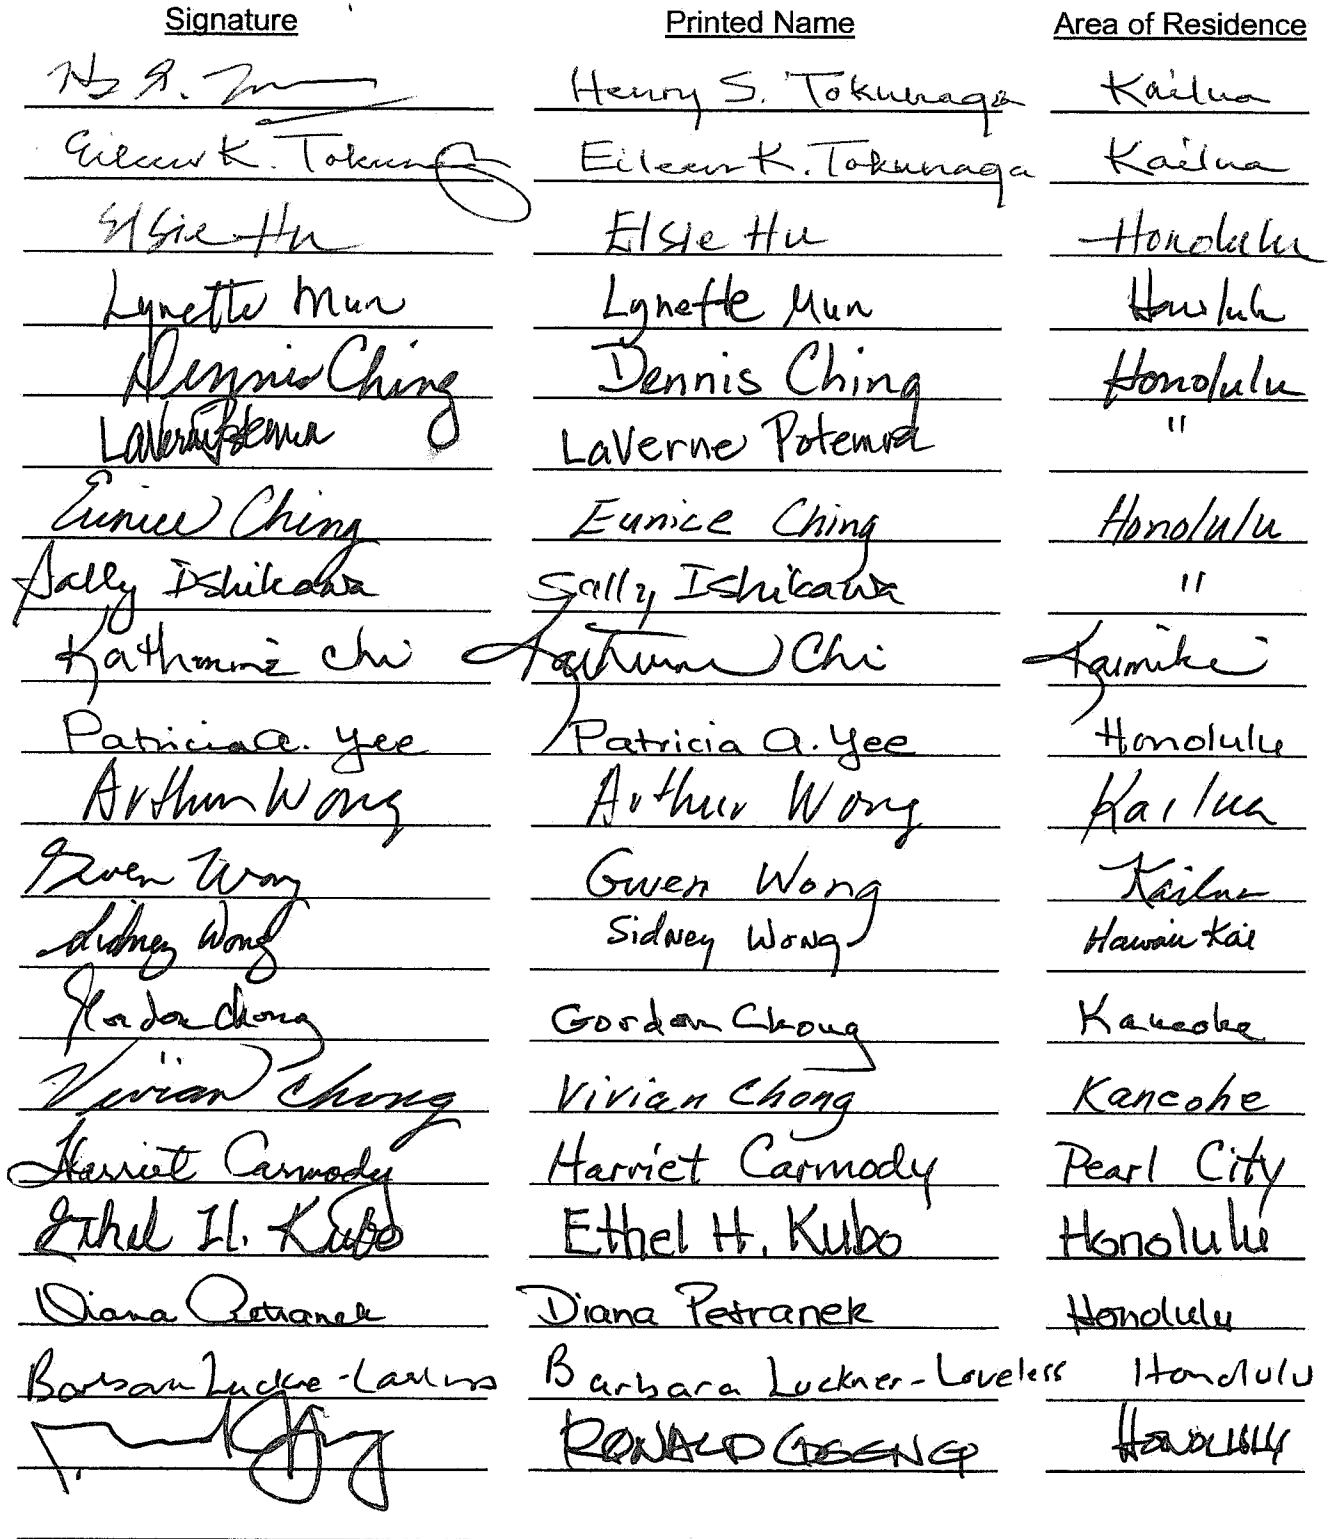 Signature Printed Name Area of Residence
Henry S. Tokunaga Kailua
Eileen K. Tokunaga Eileen K. Tokunaga Kailua
Elsie Hu Elsie Hu Honolulu
Lynette Mun Lynette Mun Honolulu
Dennis Ching Dennis Ching Honolulu
LaVerne Potemra LaVerne Potemra "
Eunice Ching Eunice Ching Honolulu
Sally Ishikawa Sally Ishikawa "
Katherine Chi Katherine Chi Kaimuki
Patricia A. Yee Patricia A. Yee Honolulu
Arthur Wong Arthur Wong Kailua
Gwen Wong Gwen Wong Kailua
Sidney Wong Sidney Wong Hawaii Kai
Gordon Chong Gordon Chong Kaneohe
Vivian Chong Vivian Chong Kaneohe
Harriet Carmody Harriet Carmody Pearl City
Ethel H. Kubo Ethel H. Kubo Honolulu
Diana Petranek Diana Petranek Honolulu
Barbara Luckner-Loveless Barbara Luckner-Loveless Honolulu
RONALD Honolulu